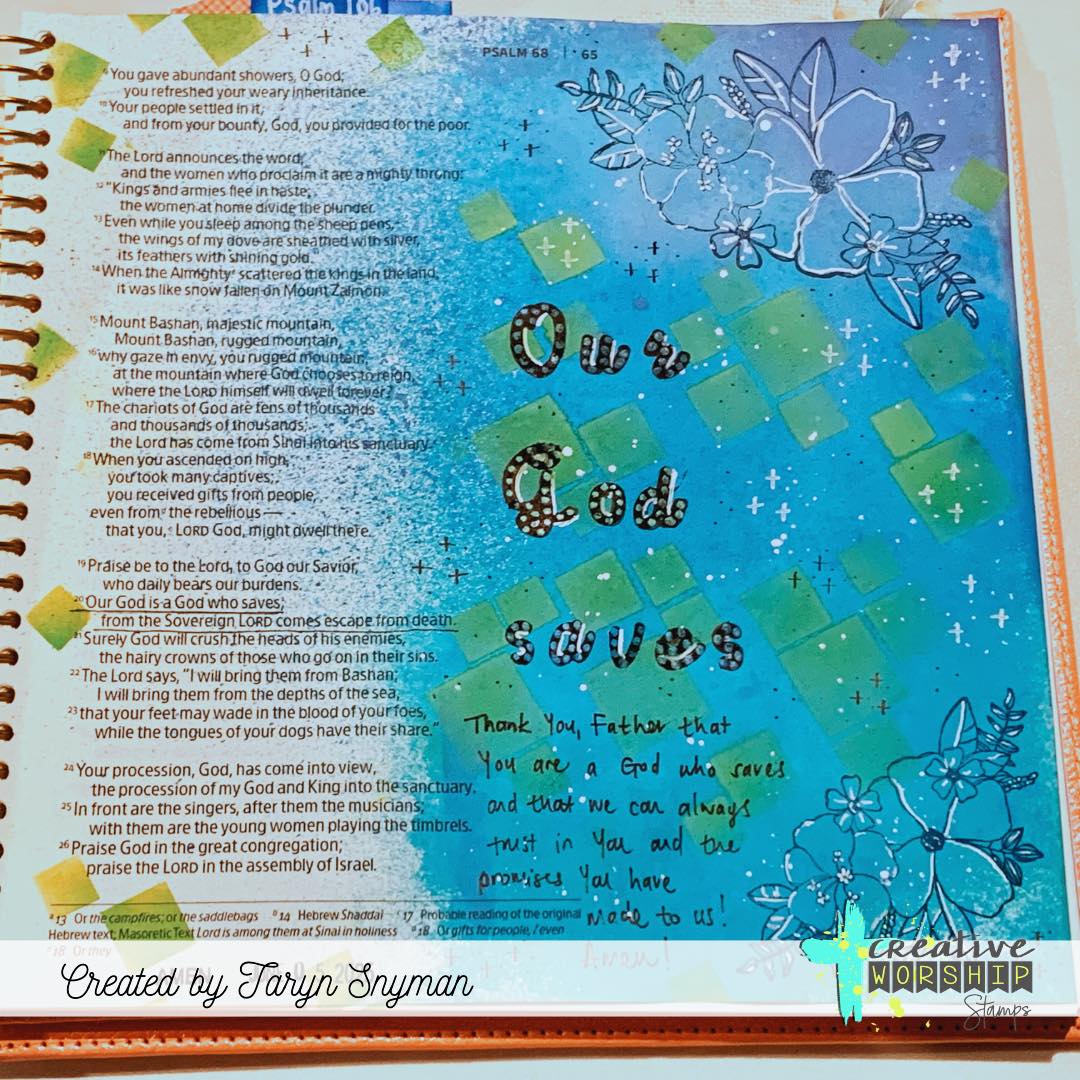 Psalm 106
PSALM 68 | 65
⁹You gave abundant showers, O God;
you refreshed your weary inheritance.
¹⁰Your people settled in it,
and from your bounty, God, you provided for the poor.
¹¹The Lord announces the word,
and the women who proclaim it are a mighty throng:
¹²"Kings and armies flee in haste;
the women at home divide the plunder.
¹³Even while you sleep among the sheep pens,
the wings of my dove are sheathed with silver,
its feathers with shining gold."
¹⁴When the Almighty scattered the kings in the land,
it was like snow fallen on Mount Zalmon.
¹⁵Mount Bashan, majestic mountain,
Mount Bashan, rugged mountain,
¹⁶why gaze in envy, you rugged mountain,
at the mountain where God chooses to reign,
where the LORD himself will dwell forever?
¹⁷The chariots of God are tens of thousands
and thousands of thousands;
the Lord has come from Sinai into his sanctuary.
¹⁸When you ascended on high,
you took many captives;
you received gifts from people,
even from the rebellious—
that you, LORD God, might dwell there.
¹⁹Praise be to the Lord, to God our Savior,
who daily bears our burdens.
²⁰Our God is a God who saves;
from the Sovereign LORD comes escape from death.
²¹Surely God will crush the heads of his enemies,
the hairy crowns of those who go on in their sins.
²²The Lord says, "I will bring them from Bashan;
I will bring them from the depths of the sea,
²³that your feet may wade in the blood of your foes,
while the tongues of your dogs have their share."
²⁴Your procession, God, has come into view,
the procession of my God and King into the sanctuary.
²⁵In front are the singers, after them the musicians;
with them are the young women playing the timbrels.
²⁶Praise God in the great congregation;
praise the LORD in the assembly of Israel.
ᵃ13 Or the campfires; or the saddlebags ᵇ14 Hebrew Shaddai ᶜ17 Probable reading of the original
Hebrew text; Masoretic Text Lord is among them at Sinai in holiness ᵈ18 Or gifts for people, / even
ᵉ18 Or they
Our
God
saves
Thank You, Father that
You are a God who saves
and that we can always
trust in You and the
promises You have
made to us!
Amen!
AMEN
Created by Taryn Snyman
creative
WORSHIP
Stamps